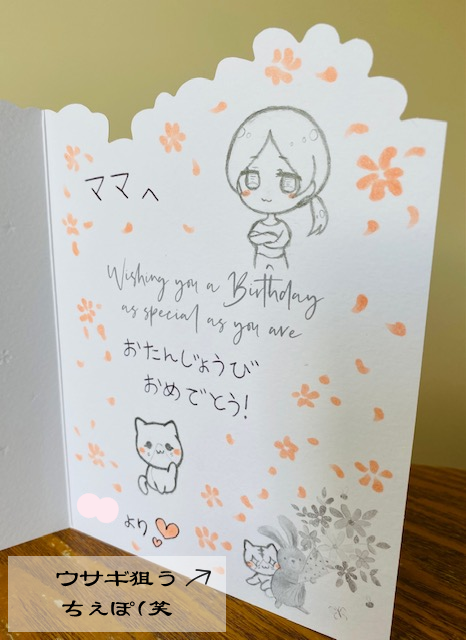 ママへ
Wishing you a Birthday
as special as you are
おたんじょうび
おめでとう！
より
ウサギ狙う↗
ちえぽ(笑